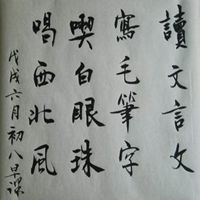 讀文言文
寫毛筆字
喫白眼珠
喝西北風
戊戌六月初八早課